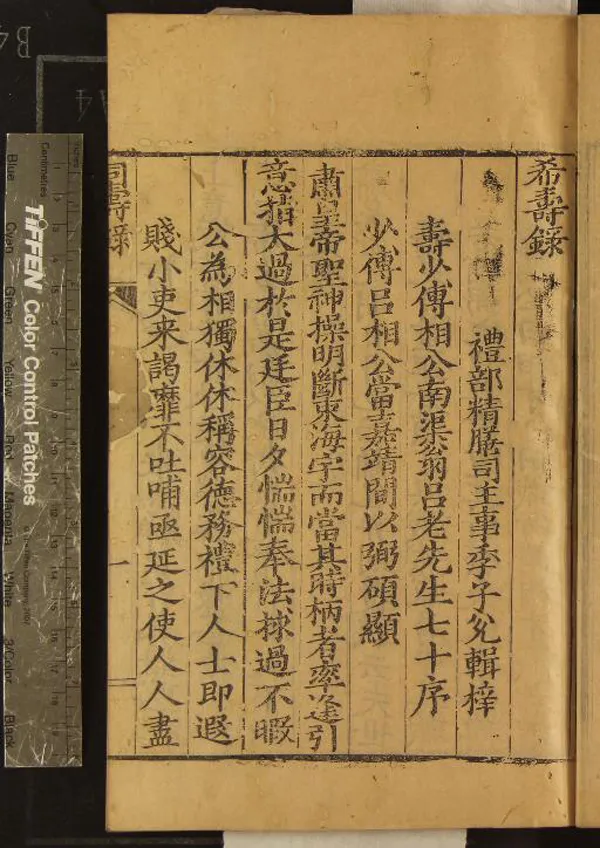 希壽錄
禮部精膳司主事李子允輯梓
壽少傅相公南渠翁呂老先生七十序
少傅呂相公當嘉靖間以弼碩顯
肅皇帝聖神操明斷東海宇而當其時柄者率逢引
意指大過於是廷臣日夕惴惴奉法捄過不暇
公為相獨休休稱容德務禮下人士即遐
賤小吏来謁靡不吐哺亟延之使人人盡
壽錄
一
TIFFEN Color Control Patches
Centimetres
Blue
Cyan
Green
Yellow
Red
Magenta
White
3/Color
Black
B4
A4